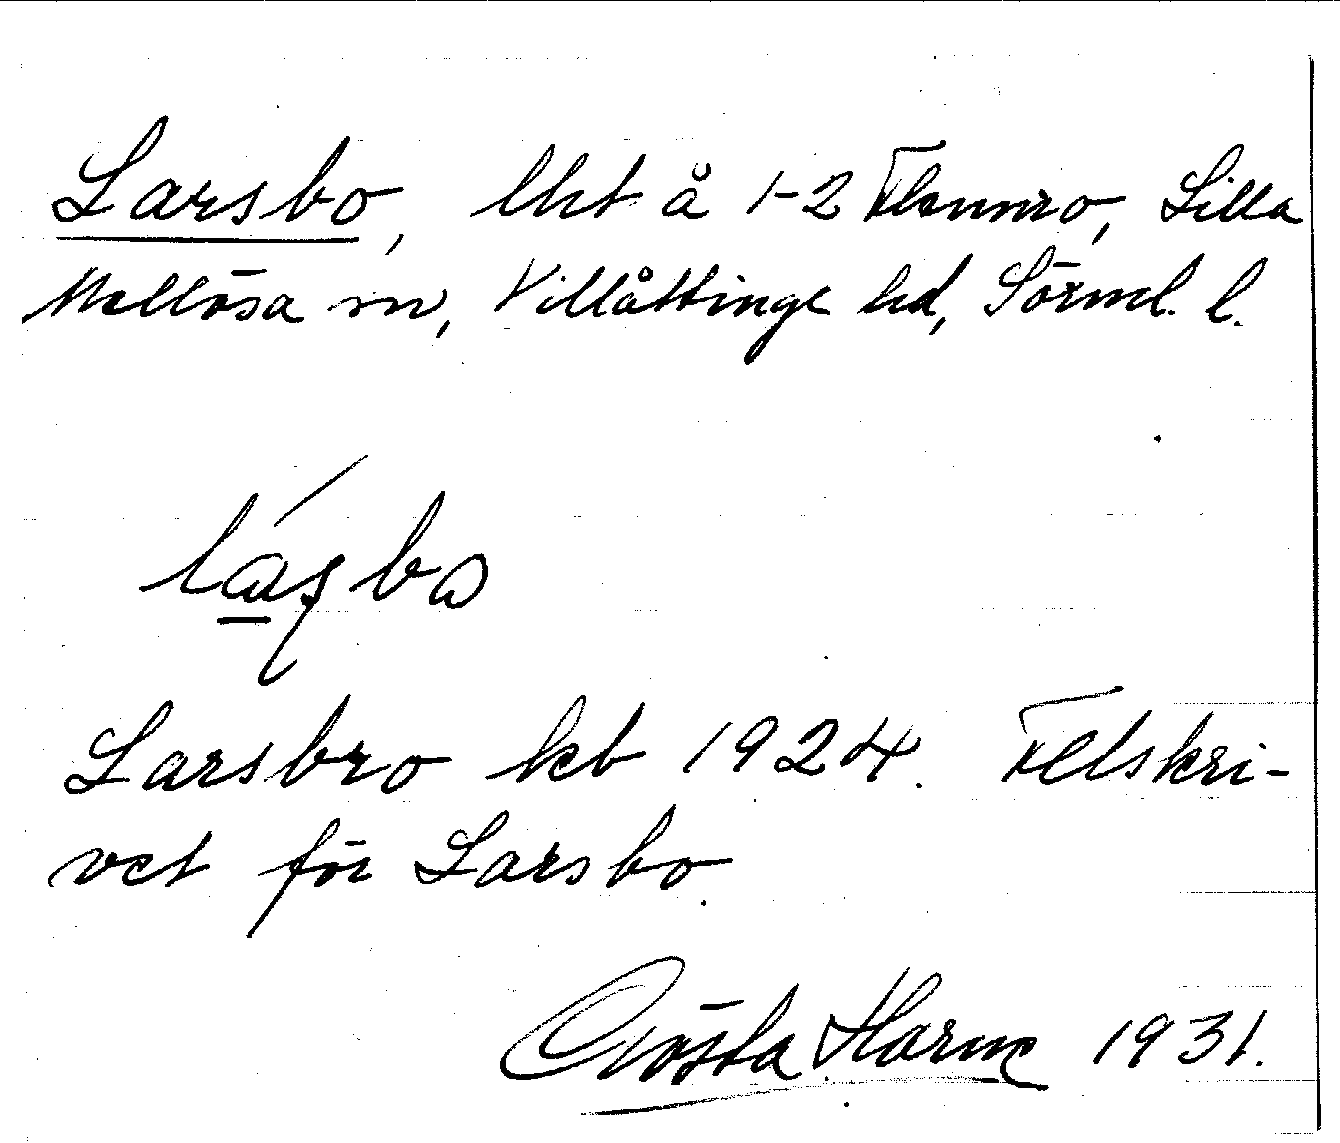 Larsbo, lht å 1-2 Flenmo, Lilla
Mellösa sn, Villåttinge hd, Sörml. l.
lasbo
Larsbro kb 1924. Felskri-
vet för Larsbo.
Gösta Harne 1931.